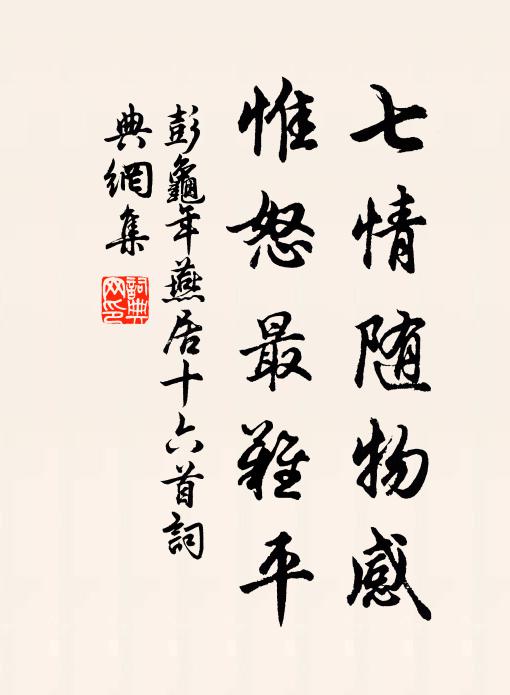 七情随物感
惟怒最難平
彭龜年燕居十六首詞
典網集
詞典网印